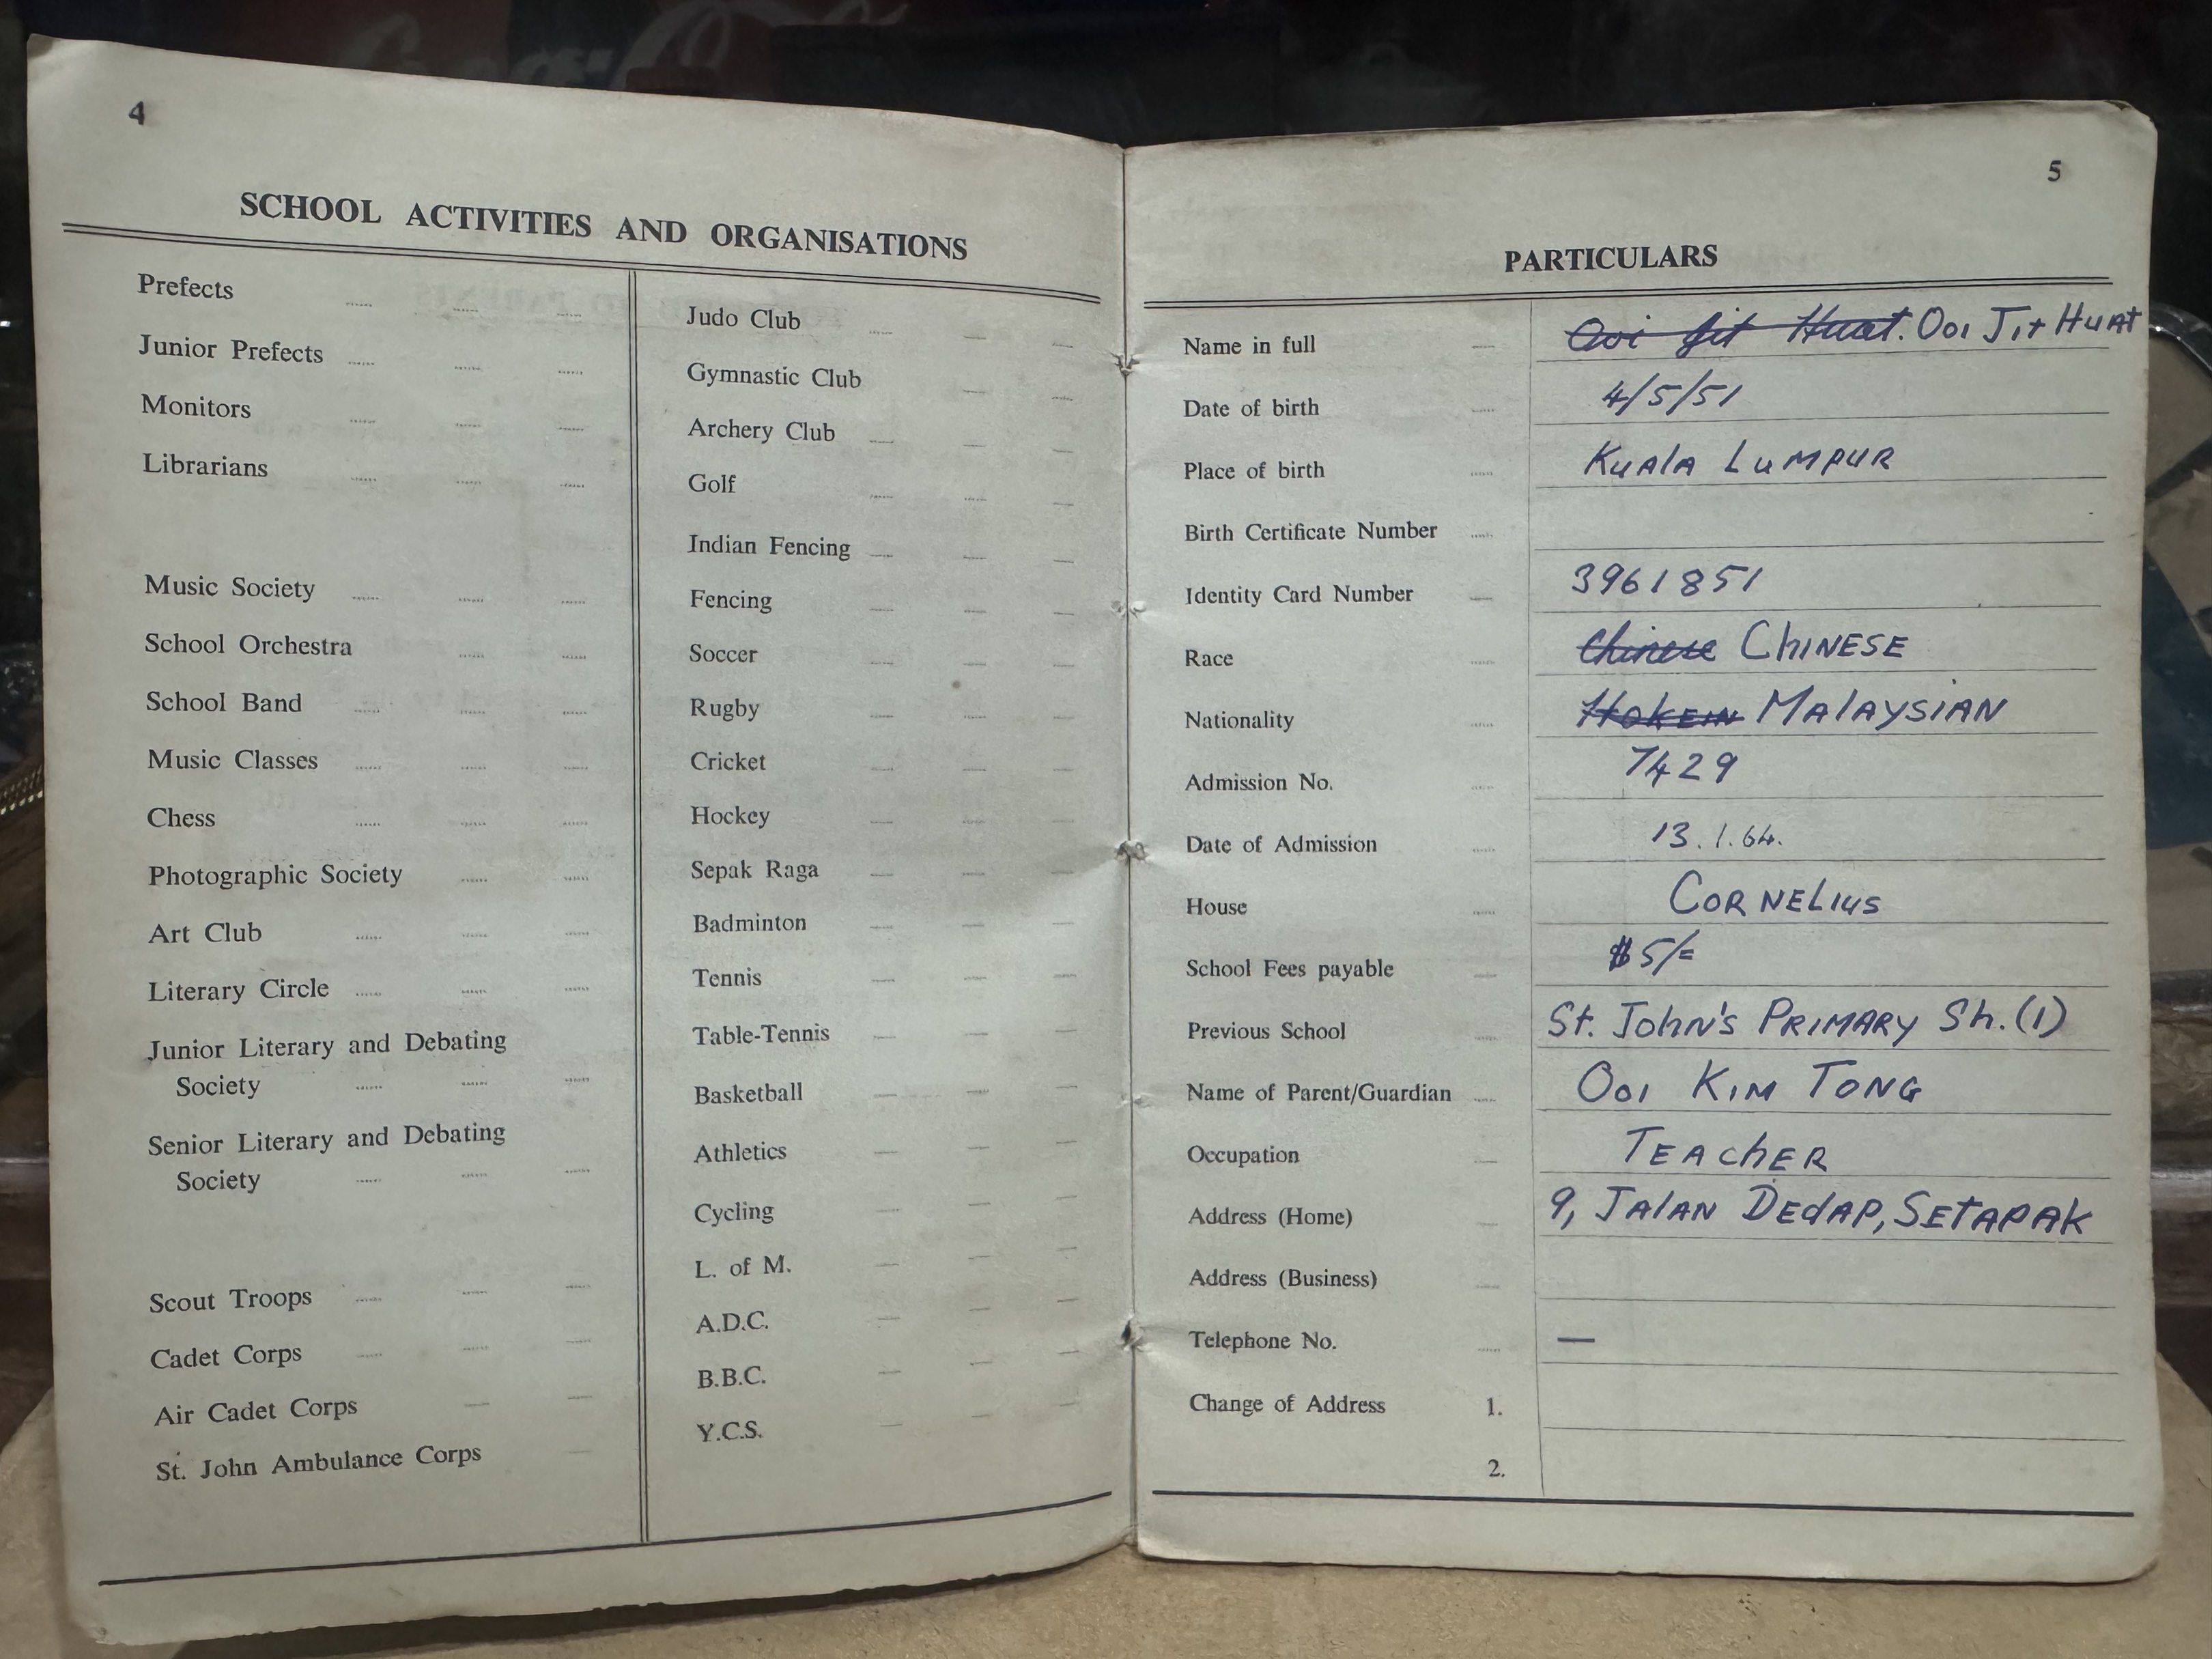 4
SCHOOL ACTIVITIES AND ORGANISATIONS
Prefects
Junior Prefects
Monitors
Librarians
Music Society
School Orchestra
School Band
Music Classes
Chess
Photographic Society
Art Club
Literary Circle
Junior Literary and Debating
Society
Senior Literary and Debating
Society
Scout Troops
Cadet Corps
Air Cadet Corps
St. John Ambulance Corps
Judo Club
Gymnastic Club
Archery Club
Golf
Indian Fencing
Fencing
Soccer
Rugby
Cricket
Hockey
Sepak Raga
Badminton
Tennis
Table-Tennis
Basketball
Athletics
Cycling
L. of M.
A.D.C.
B.B.C.
Y.C.S.
5
PARTICULARS
Name in full Ooi Jit Huat. Ooi Jit Huat
Date of birth 4/5/51
Place of birth Kuala Lumpur
Birth Certificate Number
Identity Card Number 3961851
Race Chinese CHINESE
Nationality Hokein Malaysian
Admission No. 7429
Date of Admission 13.1.64.
House Cornelius
School Fees payable $5/=
Previous School St. John's Primary Sh.(1)
Name of Parent/Guardian Ooi Kim Tong
Occupation Teacher
Address (Home) 9, Jalan Dedap, Setapak
Address (Business)
Telephone No. —
Change of Address 1.
2.